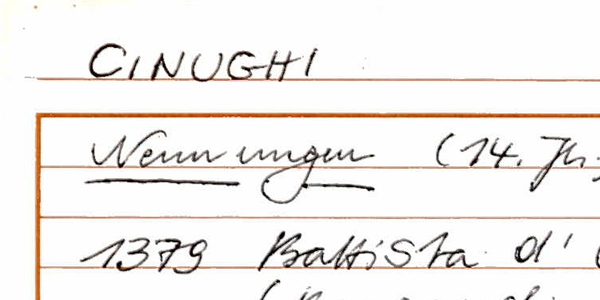 CINUGHI
Nennungen (14. Jh.
1379 Battista d'